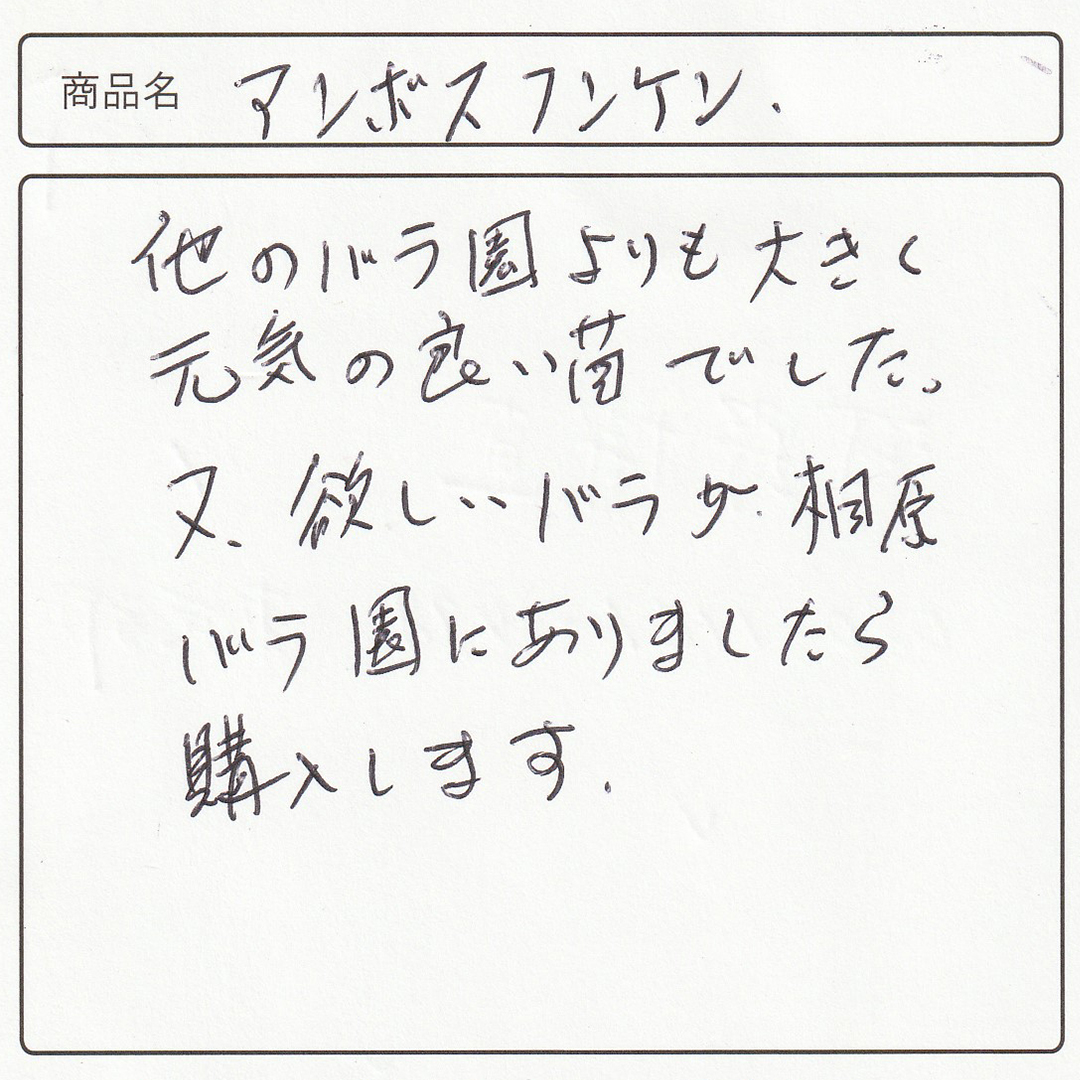 商品名 アンボスフンケン.
他のバラ園よりも大きく
元気の良い苗でした。
又、欲しいバラが相原
バラ園にありましたら
購入します.